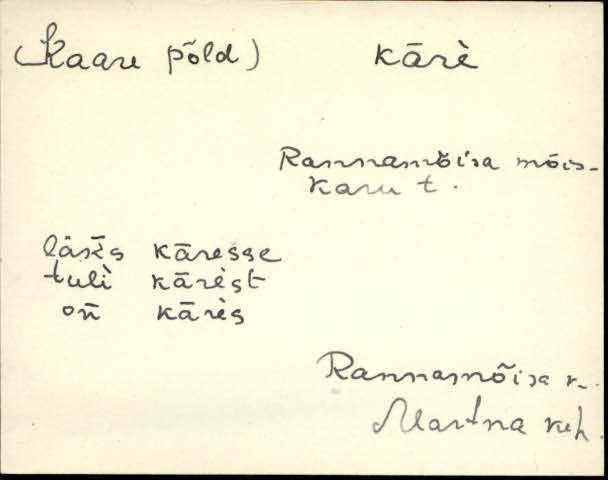 (Kaare põld) kārè
Rannamõisa mõis-
karu t.
läks kāresse
tuli kārèst
on̄ kārès
Rannamõisa k.
Martna kih.